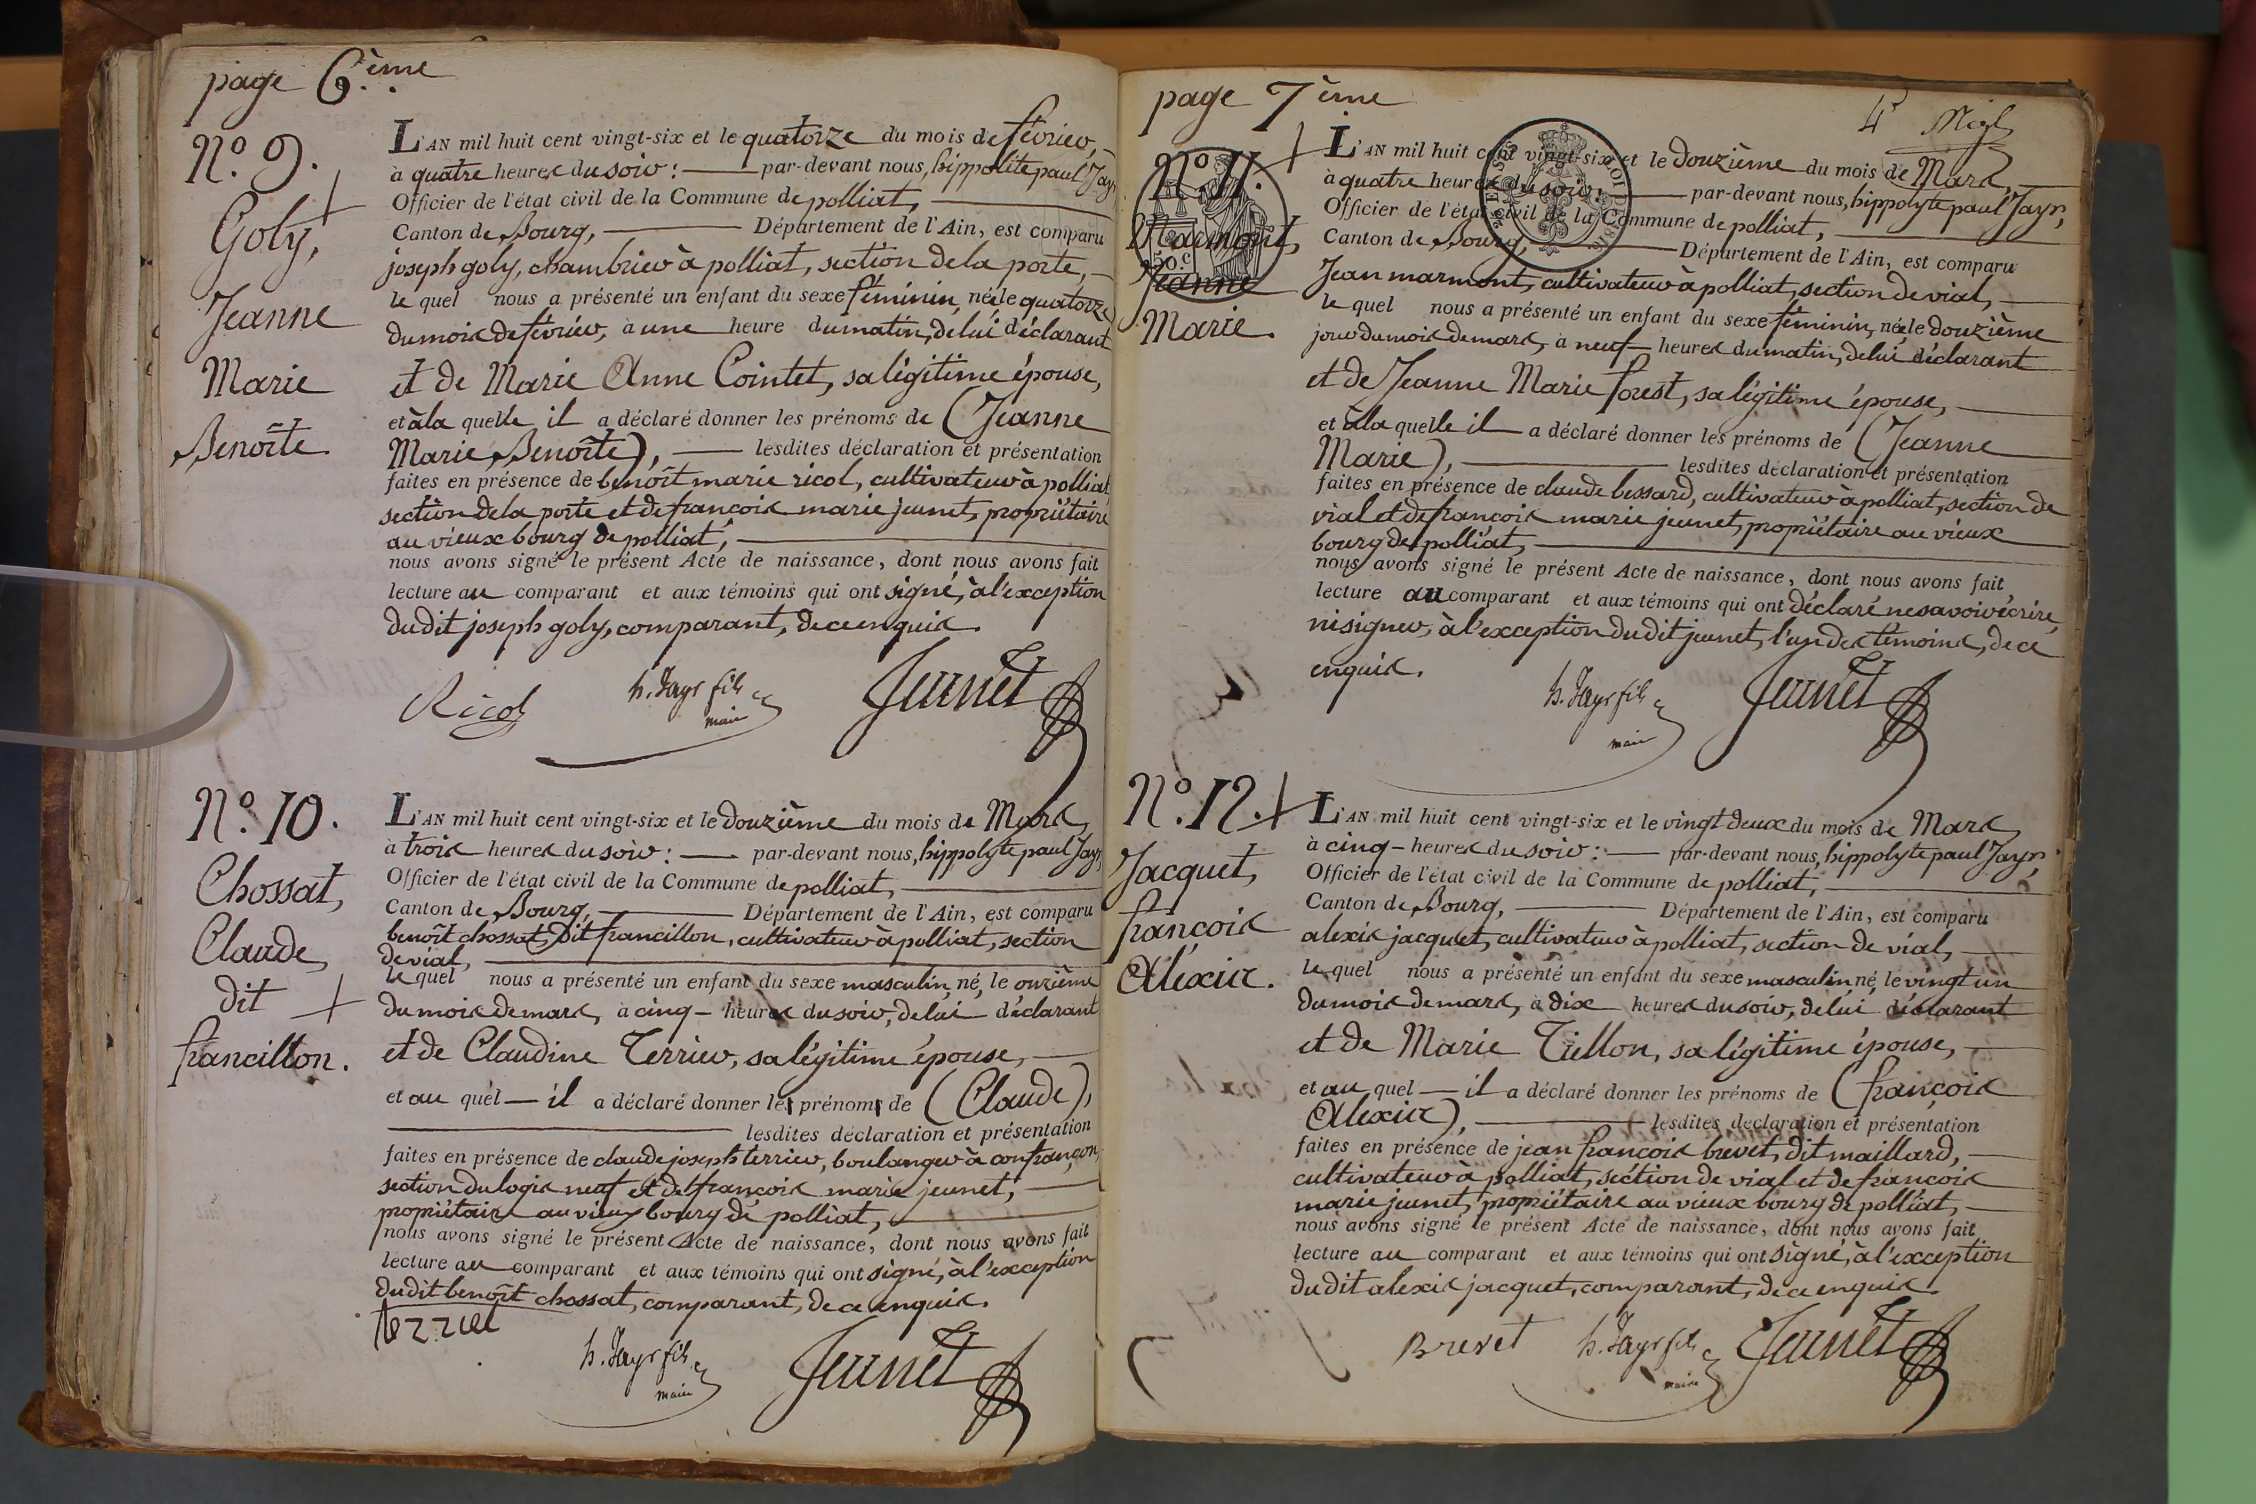 page 6.ème
N.o 9.
Goly,
Jeanne
Marie
Benoîte
L'AN mil huit cent vingt-six et le quatorze du mois de février,
à quatre heures du soir : par-devant nous, hippolite paul Jayr
Officier de l'état civil de la Commune de polliat,
Canton de Bourg, Département de l'Ain, est comparu
joseph goly, chambrier à polliat, section de la porte,
le quel nous a présenté un enfant du sexe féminin, née le quatorze
du mois de février, à une heure du matin, de lui déclarant
et de Marie Anne Cointet, sa légitime épouse,
et à la quelle il a déclaré donner les prénoms de (Jeanne
Marie Benoîte), lesdites déclaration et présentation
faites en présence de benoît marie ricol, cultivateur à polliat
section de la porte et de françois marie jeunet, propriétaire
au vieux bourg de polliat,
nous avons signé le présent Acte de naissance, dont nous avons fait
lecture au comparant et aux témoins qui ont signé, à l'exception
du dit joseph goly, comparant, de ce enquis.
Ricol h. Jayr fils Jeunet
maire
N.o 10.
Chossat,
Claude,
dit
francillon.
L'AN mil huit cent vingt-six et le douzième du mois de Mars
à trois heures du soir : par-devant nous, hippolyte paul Jayr,
Officier de l'état civil de la Commune de polliat,
Canton de Bourg, Département de l'Ain, est comparu
benoît chossat, dit francillon, cultivateur à polliat, section
de vial,
le quel nous a présenté un enfant du sexe masculin né, le onzième
du mois de mars, à cinq heures du soir, de lui déclarant
et de Claudine Terrier, sa légitime épouse,
et au quel il a déclaré donner les prénoms de (Claude),
lesdites déclaration et présentation
faites en présence de claude joseph terrier, boulanger à confrançon,
section du logis neuf et de françois marie jeunet,
propriétaire au vieux bourg de polliat,
nous avons signé le présent Acte de naissance, dont nous avons fait
lecture au comparant et aux témoins qui ont signé, à l'exception
du dit benoît chossat, comparant, de ce enquis.
terrier
h. Jayr fils Jeunet
maire
page 7ème
N.o 11.
Marmont,
Jeanne
Marie.
50.c
L'AN mil huit cent vingt-six et le douzième du mois de Mars,
à quatre heures du soir : par-devant nous, hippolyte paul Jayr,
Officier de l'état civil de la Commune de polliat,
Canton de Bourg, Département de l'Ain, est comparu
Jean marmont, cultivateur à polliat, section de vial,
le quel nous a présenté un enfant du sexe féminin, née le douzième
jour du mois de mars, à neuf heures du matin, de lui déclarant
et de Jeanne Marie forest, sa légitime épouse,
et à la quelle il a déclaré donner les prénoms de (Jeanne
Marie), lesdites déclaration et présentation
faites en présence de claude bessard, cultivateur à polliat, section de
vial et de françois marie jeunet, propriétaire au vieux
bourg de polliat,
nous avons signé le présent Acte de naissance, dont nous avons fait
lecture au comparant et aux témoins qui ont déclaré ne savoir écrire,
ni signer, à l'exception du dit jeunet, l'un des témoins, de ce
enquis.
h. Jayr fils Jeunet
maire
N.o 12.
Jacquet,
françois
Aléxis.
L'AN mil huit cent vingt-six et le vingt deux du mois de Mars
à cinq heures du soir : par-devant nous, hippolyte paul Jayr,
Officier de l'état civil de la Commune de polliat,
Canton de Bourg, Département de l'Ain, est comparu
alexis jacquet, cultivateur à polliat, section de vial,
le quel nous a présenté un enfant du sexe masculin né, le vingt un
du mois de mars, à dix heures du soir, de lui déclarant
et de Marie Tiellon, sa légitime épouse,
et au quel il a déclaré donner les prénoms de (françois
Alexis), lesdites déclaration et présentation
faites en présence de jean françois brevet, dit maillard,
cultivateur à polliat, section de vial et de françois
marie jeunet, propriétaire au vieux bourg de polliat,
nous avons signé le présent Acte de naissance, dont nous avons fait
lecture au comparant et aux témoins qui ont signé, à l'exception
du dit alexis jacquet, comparant, de ce enquis.
Brevet h. Jayr fils Jeunet
maire